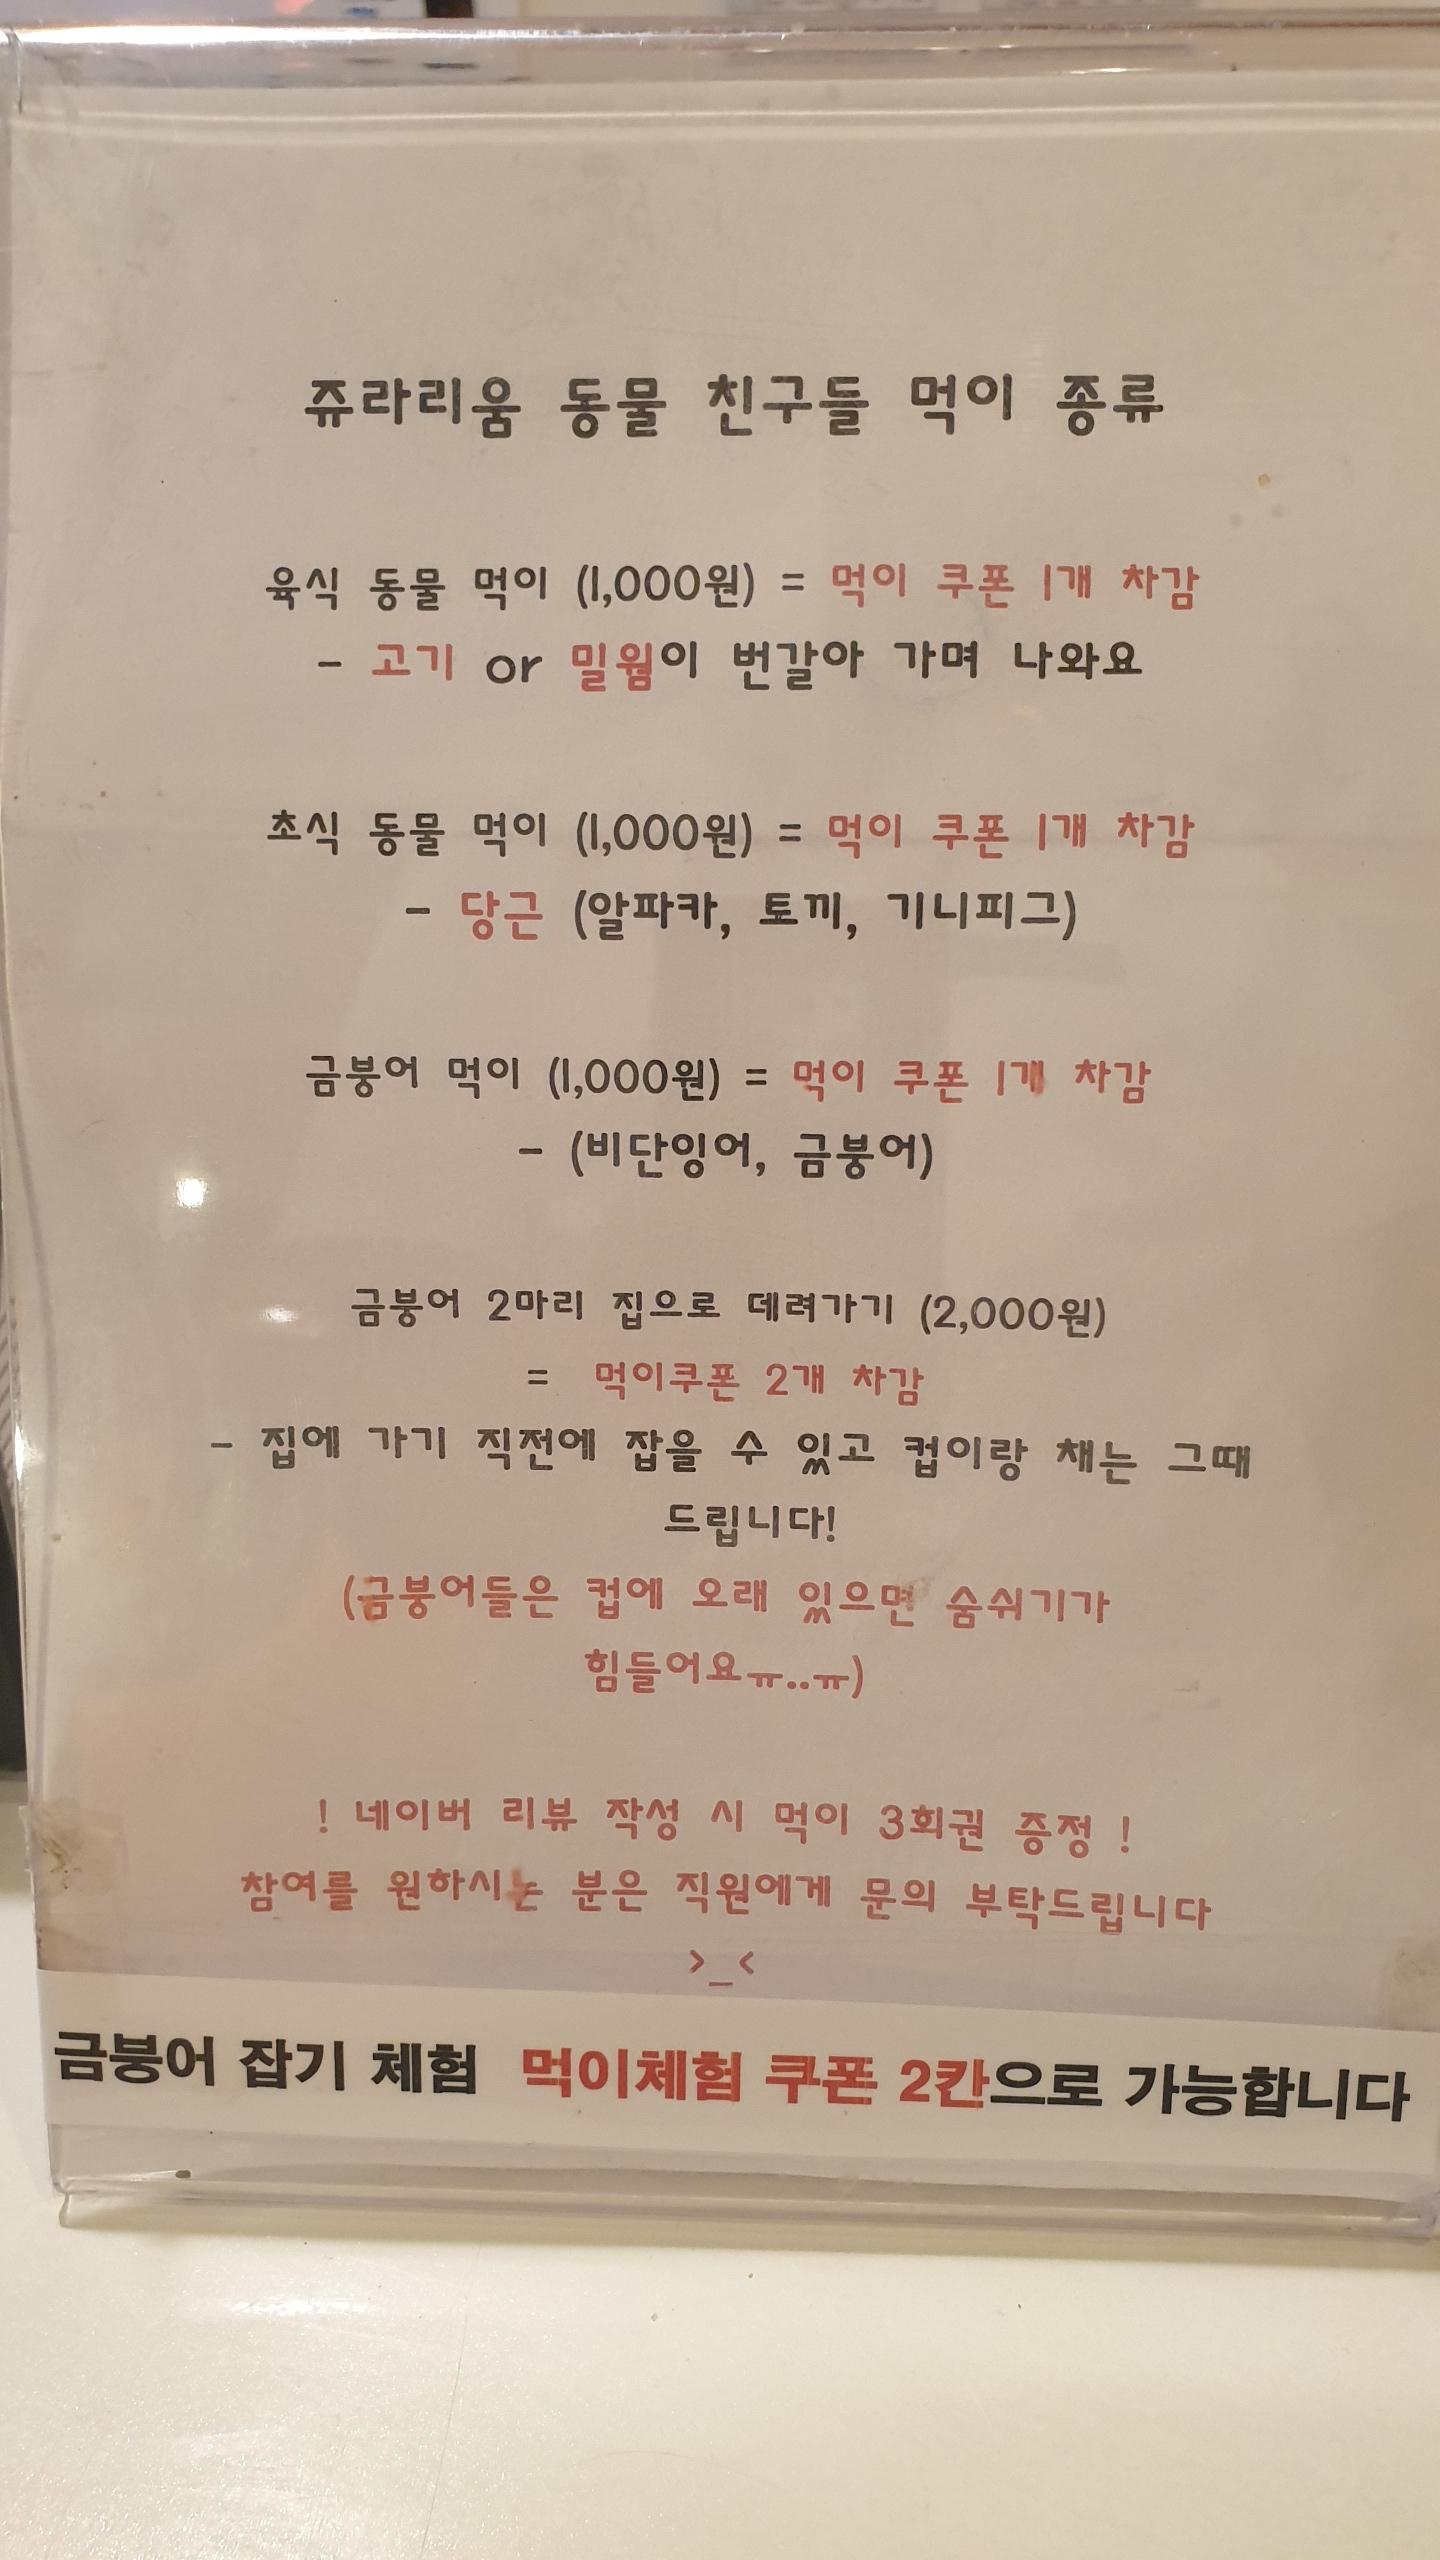 쥬라리움 동물 친구들 먹이 종류
육식 동물 먹이 (1,000원) = 먹이 쿠폰 1개 차감
- 고기 or 밀웜이 번갈아 가며 나와요
초식 동물 먹이 (1,000원) = 먹이 쿠폰 1개 차감
- 당근 (알파카, 토끼, 기니피그)
금붕어 먹이 (1,000원) = 먹이 쿠폰 1개 차감
- (비단잉어, 금붕어)
금붕어 2마리 집으로 데려가기 (2,000원)
= 먹이쿠폰 2개 차감
- 집에 가기 직전에 잡을 수 있고 컵이랑 채는 그때
드립니다!
(금붕어들은 컵에 오래 있으면 숨쉬기가
힘들어요ㅠ..ㅠ)
! 네이버 리뷰 작성 시 먹이 3회권 증정 !
참여를 원하시는 분은 직원에게 문의 부탁드립니다
>_<
금붕어 잡기 체험 먹이체험 쿠폰 2칸으로 가능합니다